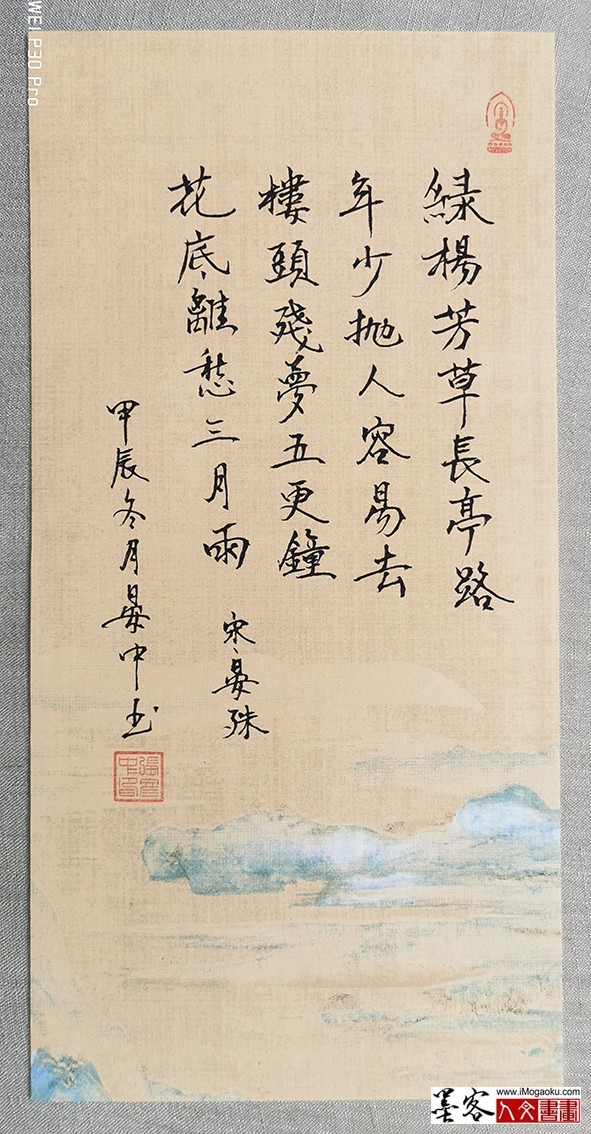 緑楊芳草長亭路
年少抛人容易去
樓頭殘夢五更鐘
花底離愁三月雨
宋晏殊
甲辰冬月中书
WEI P30 Pro
墨客
www.iMogaoku.com
人文書畫